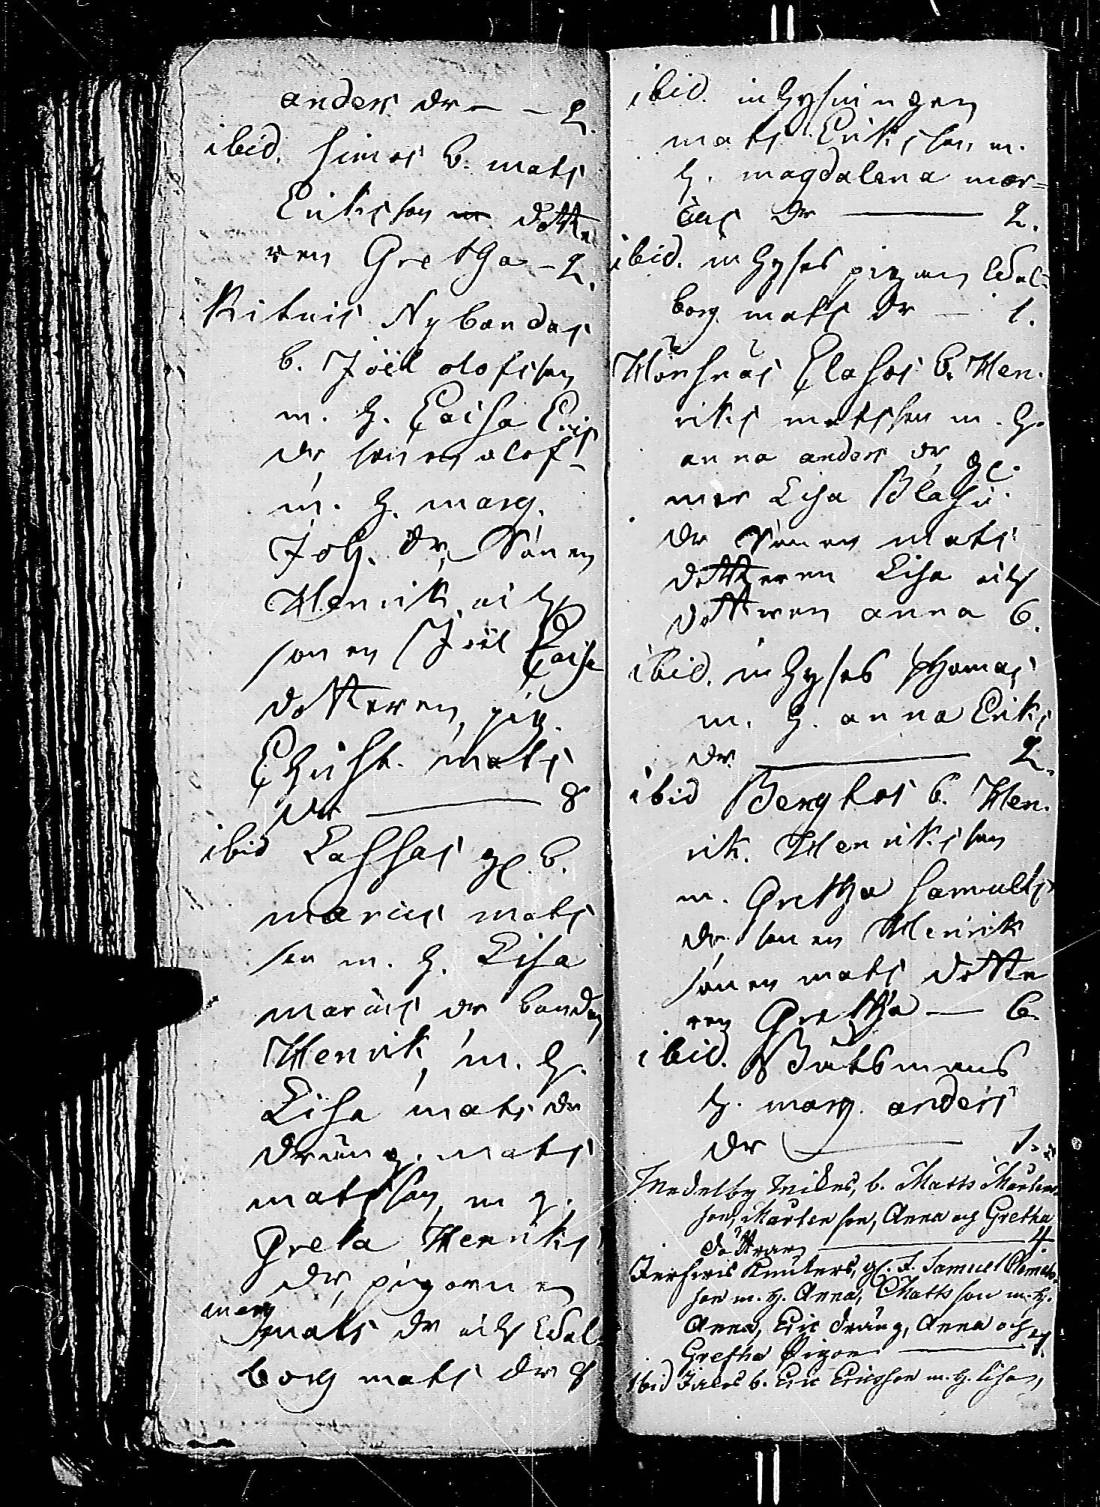 anders dr — – 2.
ibid. Simos b. mats
Eriksson m dotte
ren Gretha – 2.
Kitnis Nybondas
b. Joël olofsson
m. h. Caisa Erics
dr, sonen olof
m. h. marg.
Joh. dr, Sonen
Henrik, och
sonen Joël Caisa
dotteren, pig.
Elisab. mats
dr ——— 8
ibid Lassas gl. b.
marcus mats
son m. h. Lisa
marcus dr bonden
Henrik, m. h.
Lisa mats dr
dräng. mats
matsson, m h.
Greta Henriks
dr, pigorne
marg
mats dr och Wal-
borg mats dr 8
ibid. inhysningen
mats Eriksson m.
h. magdalena mar-
cus Dr ——— 2.
ibid. inhyses pigan Wal-
borg mats dr — 1.
Clasos b. Hen-
riks matsson m. h.
anna anders dr gl.
mor Lisa
dr Sonen mats
dotteren Lisa och
dotteren anna 6.
ibid. inhyses Thomas
m. h. anna Eriks
dr ——— 2.
ibid Bengtos b. Hen-
rik. Henriksson
m. Gretha Samuels
dr sonen Henrik
sonen mats dotte
ren Gretha — 6.
ibid. Båtsmans
h. marg. anders
dr ——— 1.
b. Matts Mårtens
son, Mårten son, Anna och Gretha
döttrar ——— 4
Knuters, gl. f. Samuel
son m. h. Anna, Matts son m. h.
Anna, Eric dräng, Anna och
Gretha Pigor ———
Ibid b. Eric Ericsson m. h. Lisa,